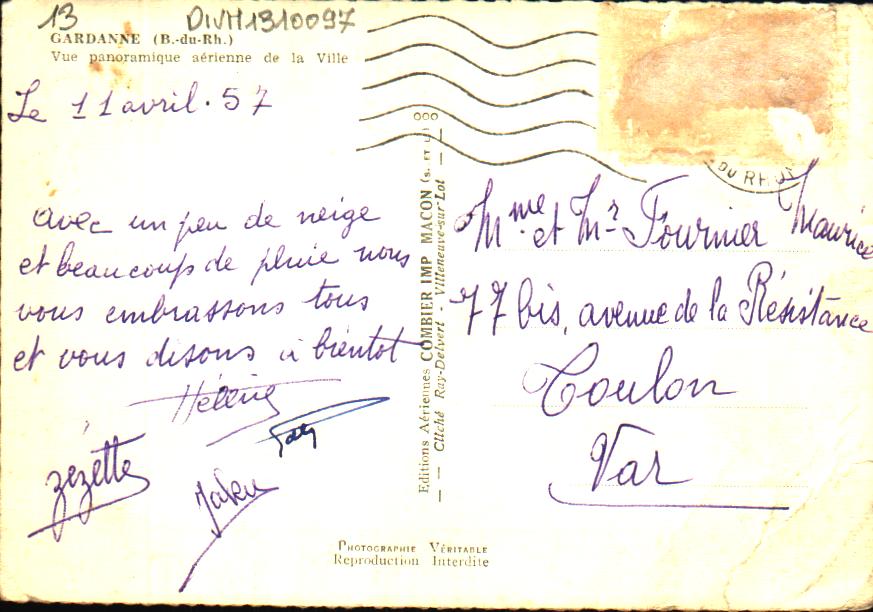 13
DIVM1310097
GARDANNE (B.-du-Rh.)
Vue panoramique aérienne de la Ville
Le 11 avril . 57
avec un peu de neige
et beaucoup de pluie nous
vous embrassons tous
et vous disons à bientot
Hélène
zézette
Editions Aériennes COMBIER IMP MACON (S. ET L.)
Cliché Ray-Delvert - Villeneuve-sur-Lot
DU RH
Mme et Mr Fournier Maurice
77 bis, avenue de la Résistance
Toulon
Var
PHOTOGRAPHIE VÉRITABLE
Reproduction Interdite